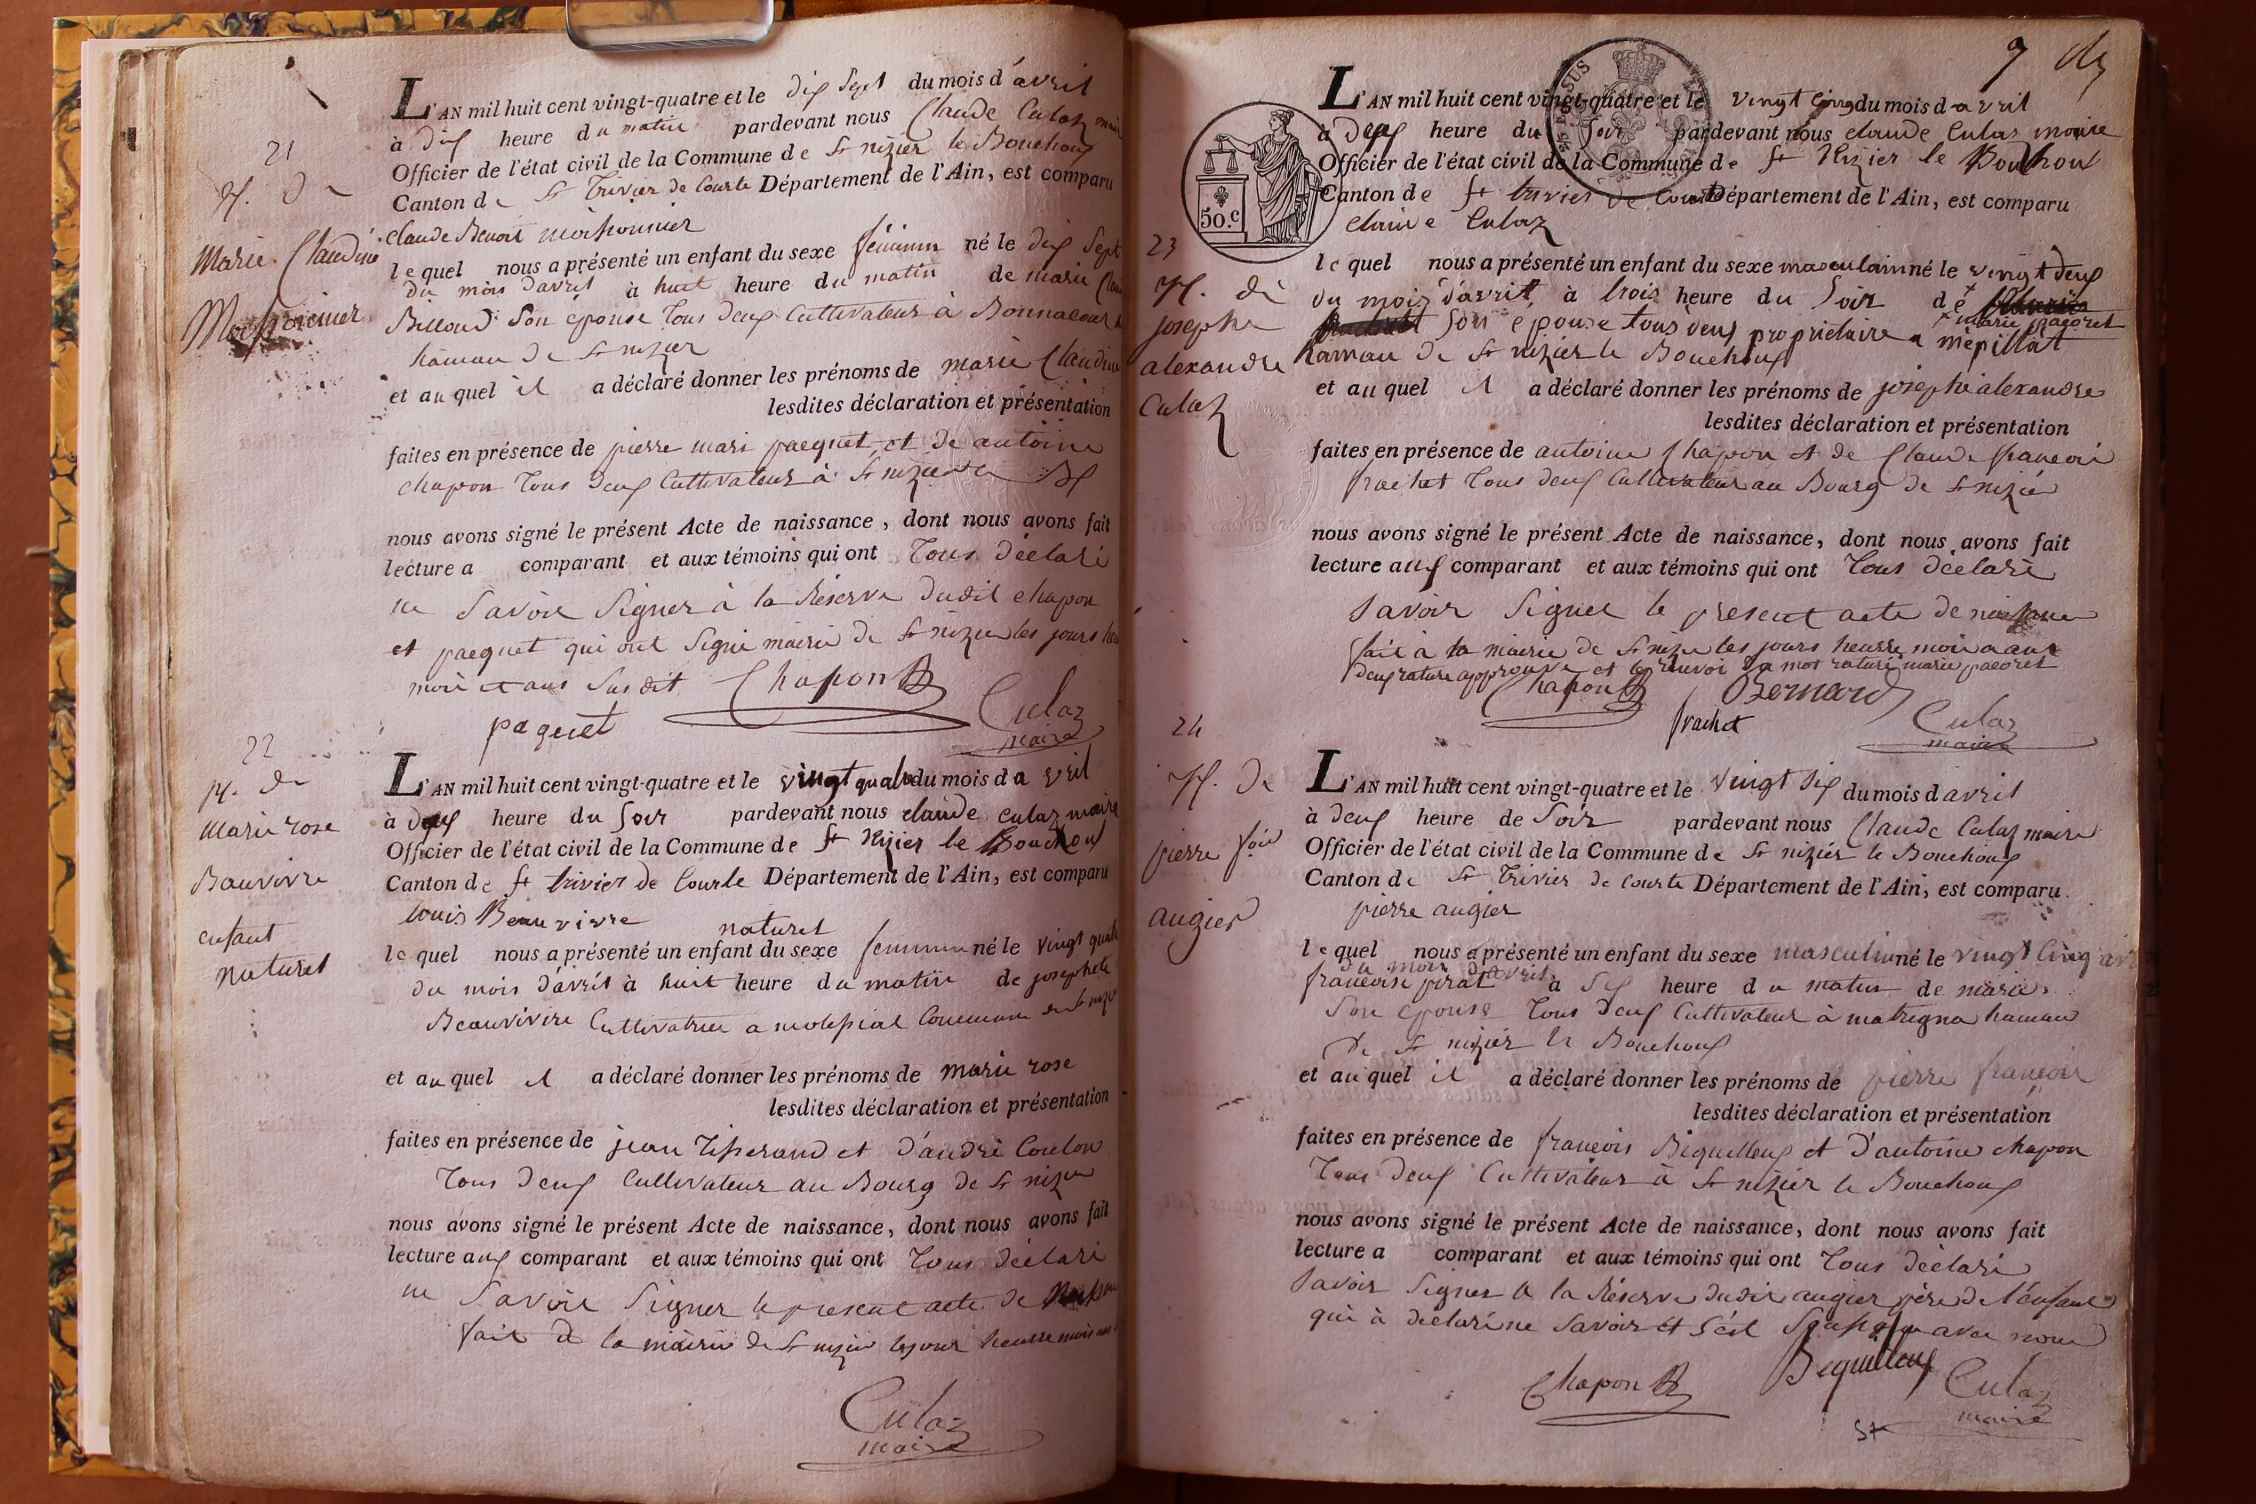 21
N. de
Marie Claudine
Moissonnier
L'AN mil huit cent vingt-quatre et le dix Sept du mois d'avril
à dix heure du matin pardevant nous Claude Culaz maire
Officier de l'état civil de la Commune de St nizier le Bouchoux
Canton de St Trivier de Courte Département de l'Ain, est comparu
Claude Benoit moissonnier
lequel nous a présenté un enfant du sexe féminin né le dix Sept
du mois d'avril à huit heure du matin de marie
Billoud Son épouse Tous deux Cultivateur à
hameau de St nizier
et au quel il a déclaré donner les prénoms de marie Claudine
lesdites déclaration et présentation
faites en présence de pierre mari pacquet et de antoine
chapon Tous deux Cultivateur à St nizier
nous avons signé le présent Acte de naissance, dont nous avons fait
lecture a comparant et aux témoins qui ont Tous déclaré
ne Savoir Signer à la Réserve dudit chapon
et pacquet qui ont Signé mairie de St nizier les jours
moi et ans Susdit Chapon
paquet Culaz
maire
22
N. de
Marie rose
Bauvivre
enfant
naturel
L'AN mil huit cent vingt-quatre et le vingt quatre du mois d avril
à deux heure du Soir pardevant nous claude culaz maire
Officier de l'état civil de la Commune de St Nizier le Bouchoux
Canton de St trivier de Courte Département de l'Ain, est comparu
louis Beauvivre
naturel
lequel nous a présenté un enfant du sexe feminin né le vingt quatre
du mois d'avril à huit heure du matin de josephete
Beauvivre Cultivatrice a Commune de St nizier
et au quel il a déclaré donner les prénoms de marie rose
lesdites déclaration et présentation
faites en présence de jean Tisserand et d'andré Coulon
Tous deux Cultivateur au Bourg de St nizier
nous avons signé le présent Acte de naissance, dont nous avons fait
lecture aux comparant et aux témoins qui ont Tous déclaré
ne Savoir Signer le present acte de
fait à la mairie de St nizier les jour heurre mois
Culaz
maire
9
50.c
23
N. de
josephe
alexandre
Culaz
L'AN mil huit cent vingt-quatre et le vingt cinq du mois d avril
à deux heure du Soir pardevant nous claude Culaz maire
Officier de l'état civil de la Commune de St Nizier le Bouchoux
Canton de St trivier de Courte Département de l'Ain, est comparu
claude Culaz
lequel nous a présenté un enfant du sexe masculain né le vingt deux
du mois d'avril à trois heure du Soir de
marie pacoret
Son epouse tous deux propriétaire a mépillat
hamau de St nizier le Bouchoux
et au quel il a déclaré donner les prénoms de josephe alexandre
lesdites déclaration et présentation
faites en présence de antoine Chapon et de Claude francois
frachet Tous deux Cultivateur au Bourg de St nizié
nous avons signé le présent Acte de naissance, dont nous avons fait
lecture aux comparant et aux témoins qui ont Tous déclaré
Savoir Signer le present acte de naissance
fait à la mairie de St nizier les jours heurre moi a ans
deux rature approuvé et le renvoi du mot raturé marie pacoret
Chapon Bernard
frachet Culaz
maire
24
N. de
pierre fois
augier
L'AN mil huit cent vingt-quatre et le Vingt Six du mois d avril
à deux heure de Soir pardevant nous Claude Culaz maire
Officier de l'état civil de la Commune de St nizier le Bouchoux
Canton de St Trivier de Courte Département de l'Ain, est comparu
pierre augier
lequel nous a présenté un enfant du sexe masculin né le vingt Cinq
du mois d'avril
francoise pirat à Six heure du matin de marie
Son epouse Tous deux Cultivateur à matregna hamau
de St nizier le Bouchoux
et au quel il a déclaré donner les prénoms de pierre françois
lesdites déclaration et présentation
faites en présence de françois Bequilleux et d'antoine chapon
Tous deux Cultivateur à St nizier le Bouchoux
nous avons signé le présent Acte de naissance, dont nous avons fait
lecture a comparant et aux témoins qui ont Tous déclaré
Savoir Signer a la Réserve dudit augier père de l'enfant
qui à déclaré ne Savoir et avec nous
Chapon Bequilleux Culaz
maire